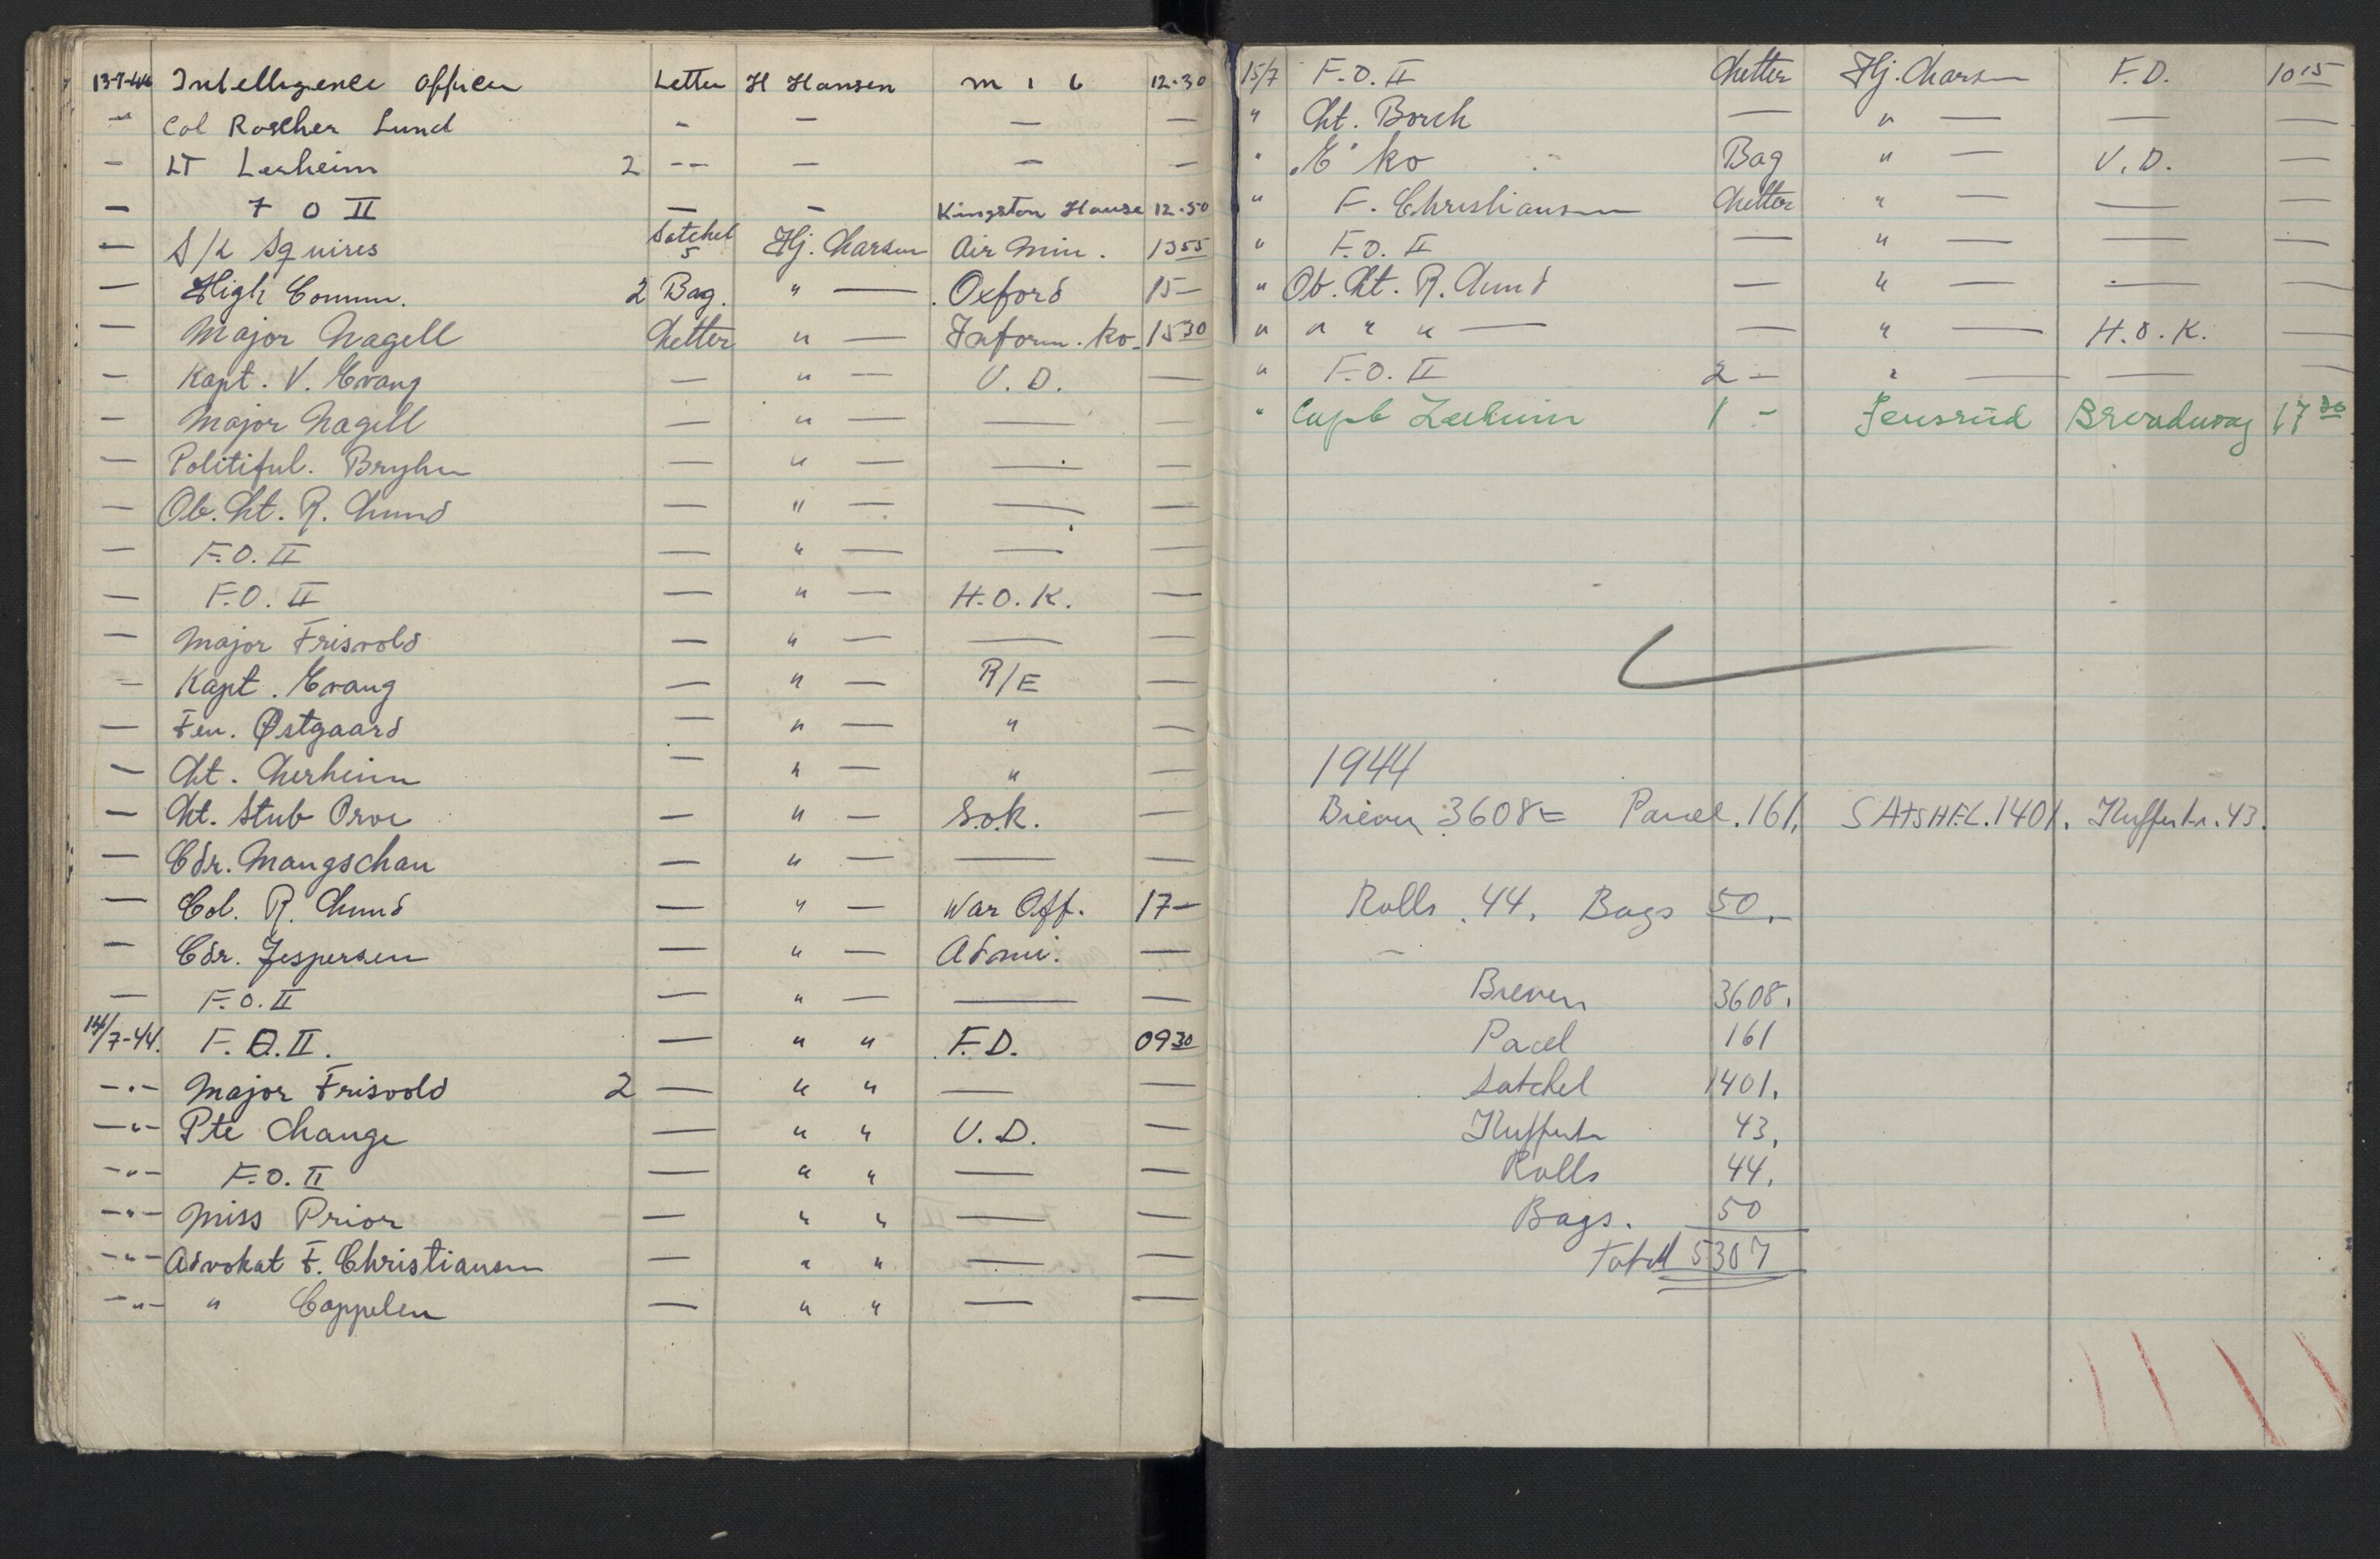 13-7-44 Intelligence Officer Letter H Hansen M I 6 12.30
-"- Col Roscher Lund - - — —
- LT Lerheim 2 -- - - -
- F O II — - Kingston House 12.50
— S/L Squires Satchel 5 Hj. Larsen Air Min. 1355
— High Comm. 2 Bag. " — Oxford 15-
— Major Nagell Letter " — Inform. ko. 1530
— Kapt. V. Evang — " — U.D. —
— Major Nagell — " — — —
— Politiful. Bryhn — " — — —
— Ob.Lt. R. Lund — " — — —
— F.O. II — " — — —
— F.O. II — " — H.O.K. —
— Major Frisvold — " — — —
— Kapt. Evang — " — R/E —
— Fen. Østgaard — " — " —
— Lt. Lerheim — " — " —
— Lt. Stub Orve — " — S.O.K. —
— Cdr. Mangschau — " — — —
— Col. R. Lund — " — War Off. 17-
— Cdr. Jespersen — " — Admi. —
— F.O. II — " — — —
14/7-44. F.O. II. — " " F.D. 0930
-"- Major Frisvold 2 — " " — —
-"- Pte Lange — " " U.D. —
-"- F.O. II — " " — —
-"- Miss Prior — " " — —
-"- Advokat F. Christiansen — " " — —
-"- " Cappelen — " " — —
15/7 F.O. II Letter Hj. Larsen F.D. 1015
" Lt. Borch — " — — —
" "E" ko Bag " — U.D. —
" F. Christiansen Letter " — — —
" F.O. II — " — — —
" Ob. Lt. R. Lund — " — — —
" " " " — — " — H.O.K. —
" F.O. II 2 - " — — —
" Capt Lerheim 1 - Jensrud Broadway 1730
1944
Brever 3608= Parcel. 161. SATSHEL. 1401. Kufferter. 43.
Rolls. 44. Bags 50.
Brever 3608.
Pacel 161
Satchel 1401.
Kufferter 43.
Rolls 44.
Bags. 50
Total 5307